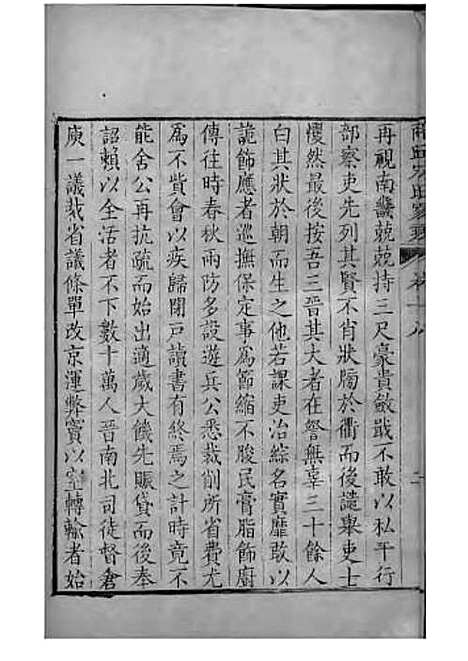 再視南畿兢兢持三尺豪貴斂戢不敢以私平行
部察吏先列其賢不肖狀牓於衢而後譴舉吏士
懓然最後按吾三晉其大者在讞無辜三十餘人
白其狀於朝而生之他若課吏治綜名實靡敢以
詭飾應者巡撫保定事為節縮不朘民膏脂飾廚
傳往時春秋兩防多設遊兵公悉裁削所省費尤
為不貲會以疾歸閉戶讀書有終焉之計時竟不
能舍公再抗疏而始出適歲大饑先賑貸而後奉
詔賴以全活者不下數十萬人晉南北司徒督倉
庾一議裁省議條單改京運弊竇以窒轉輸者始